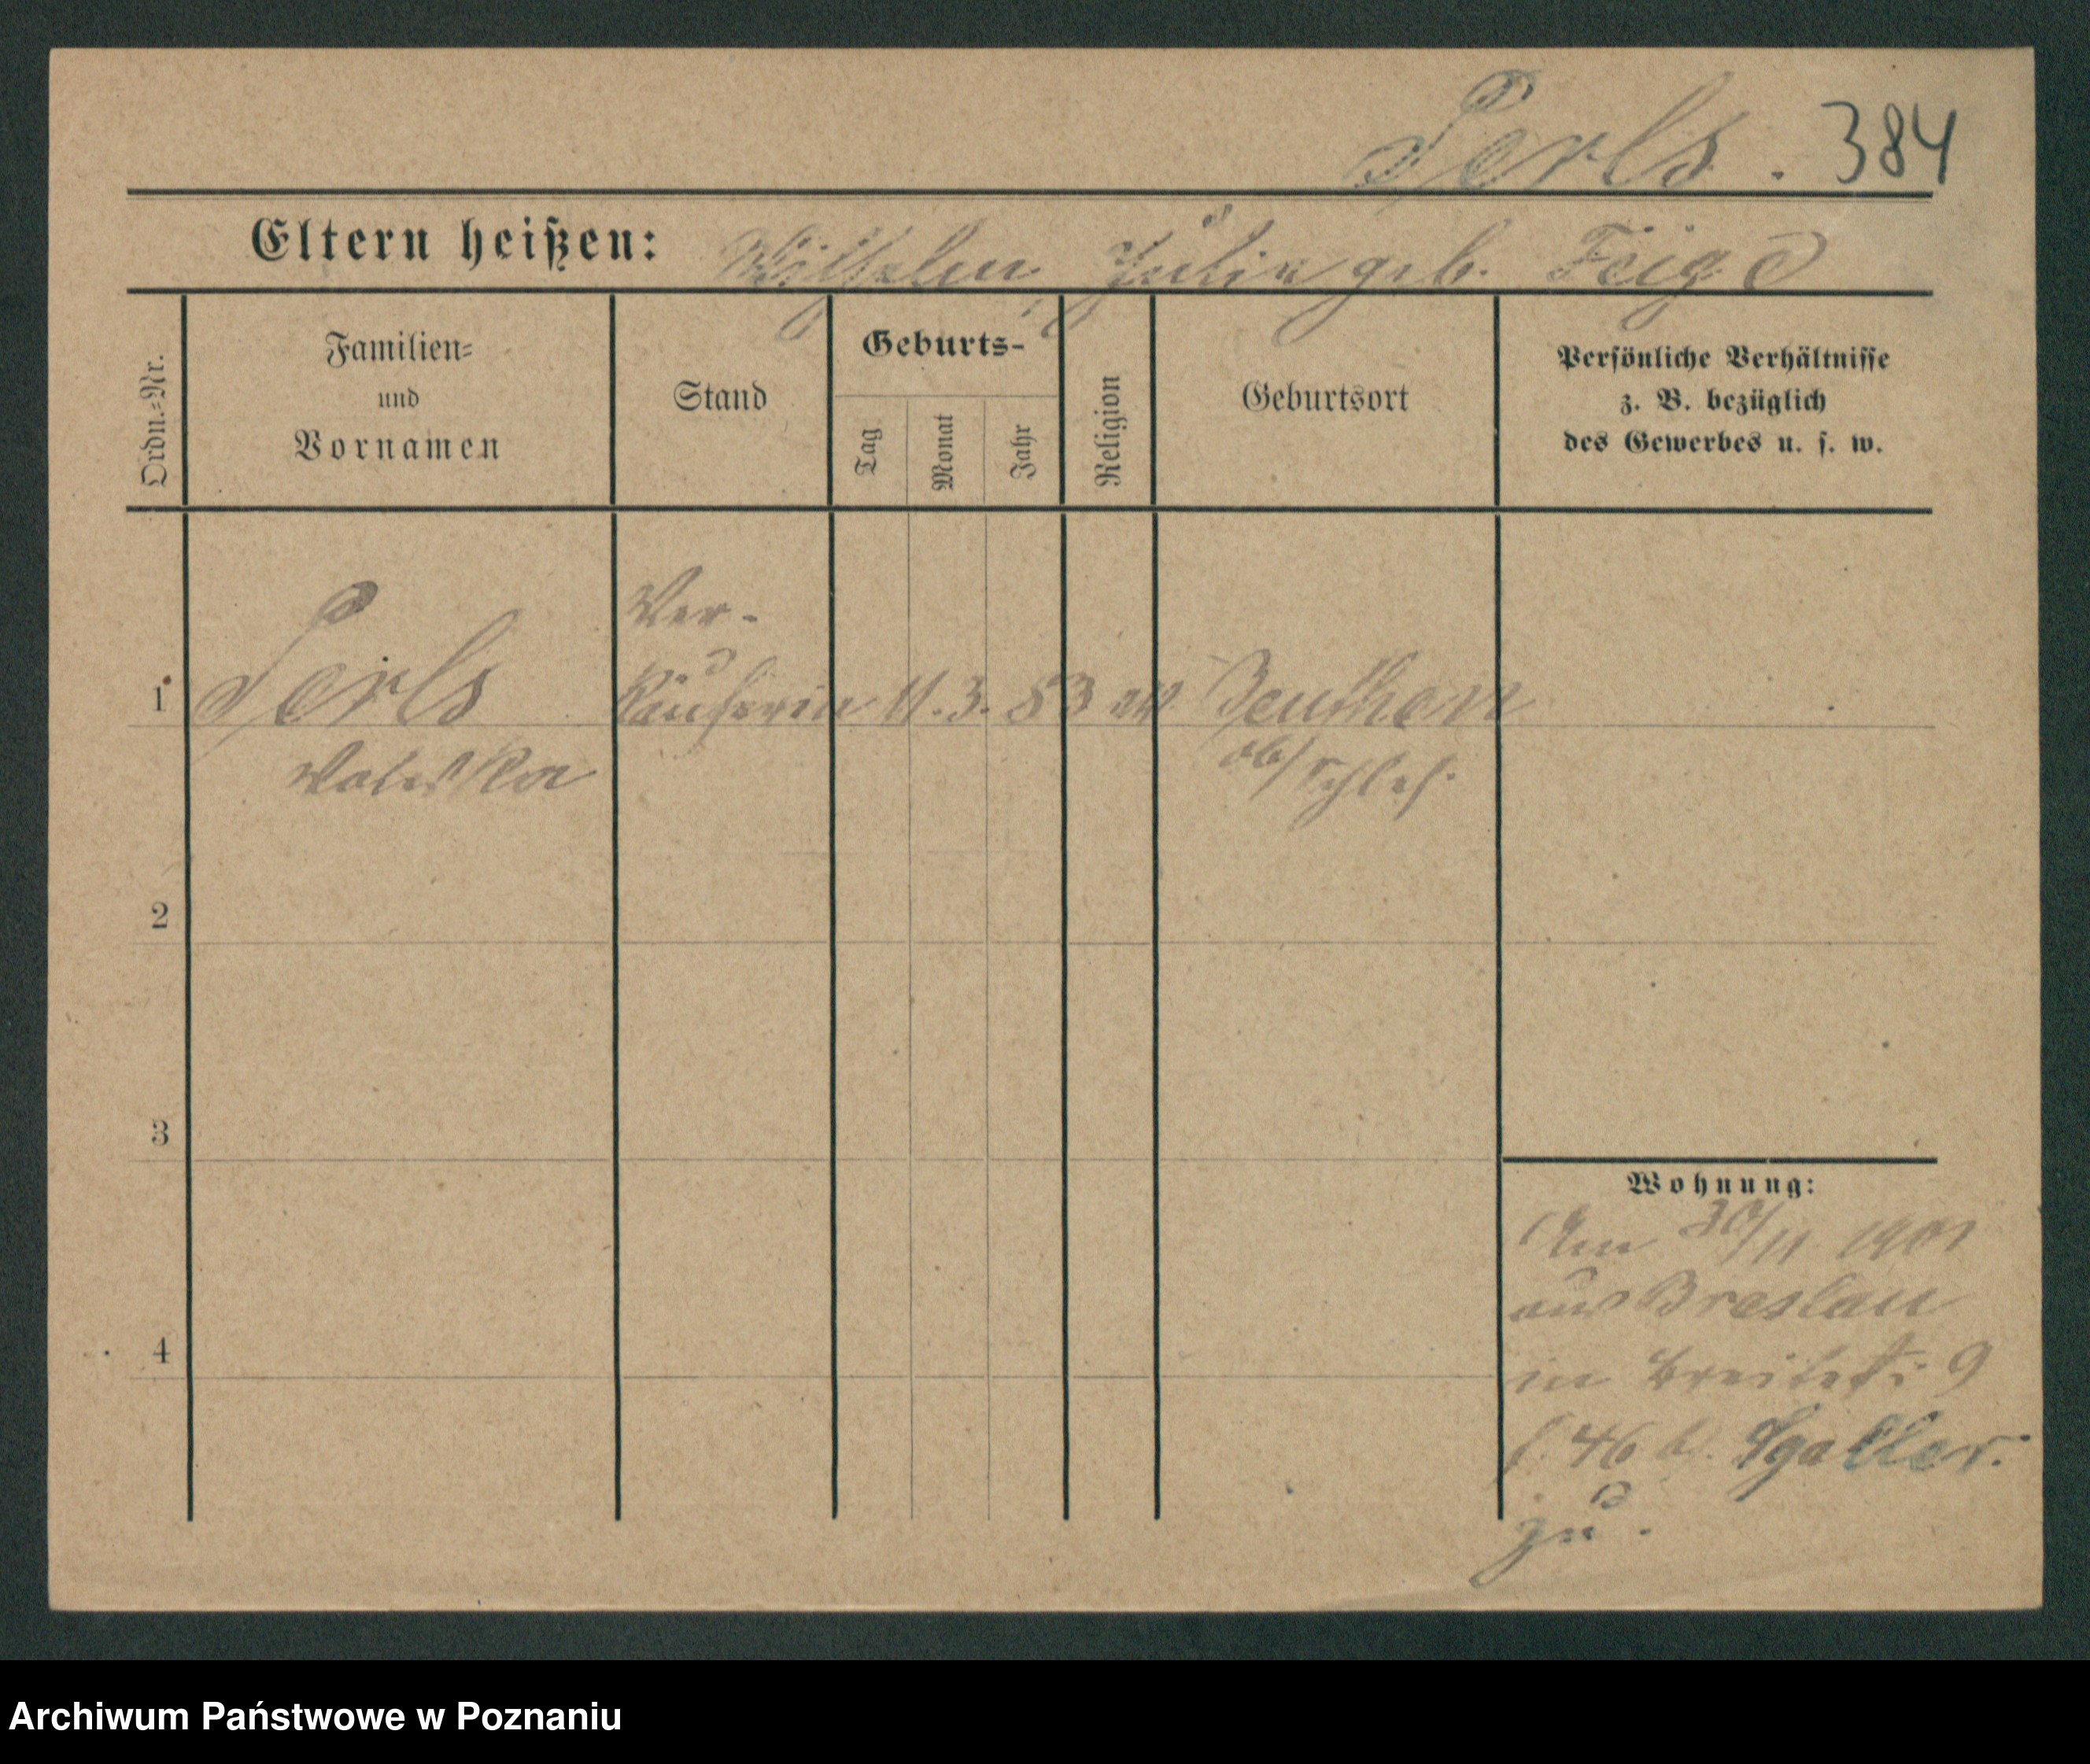 Perls. 384
Eltern heißen: Wilhelm, Julie geb. Feige
Ordn.=Nr.
Familien=
und
Vornamen
Stand
Geburts-
Tag
Monat
Jahr
Religion
Geburtsort
Persönliche Verhältnisse
z. B. bezüglich
des Gewerbes u. s. w.
Ver-
1 Perls käuferin 11. 3. 83 Beuthen
Valeska ob/Schles.
2
3
4
Wohnung:
Am 30/11 1901
aus Breslau
in Breitestr. 9
b. Sgaller.
zu.
Archiwum Państwowe w Poznaniu